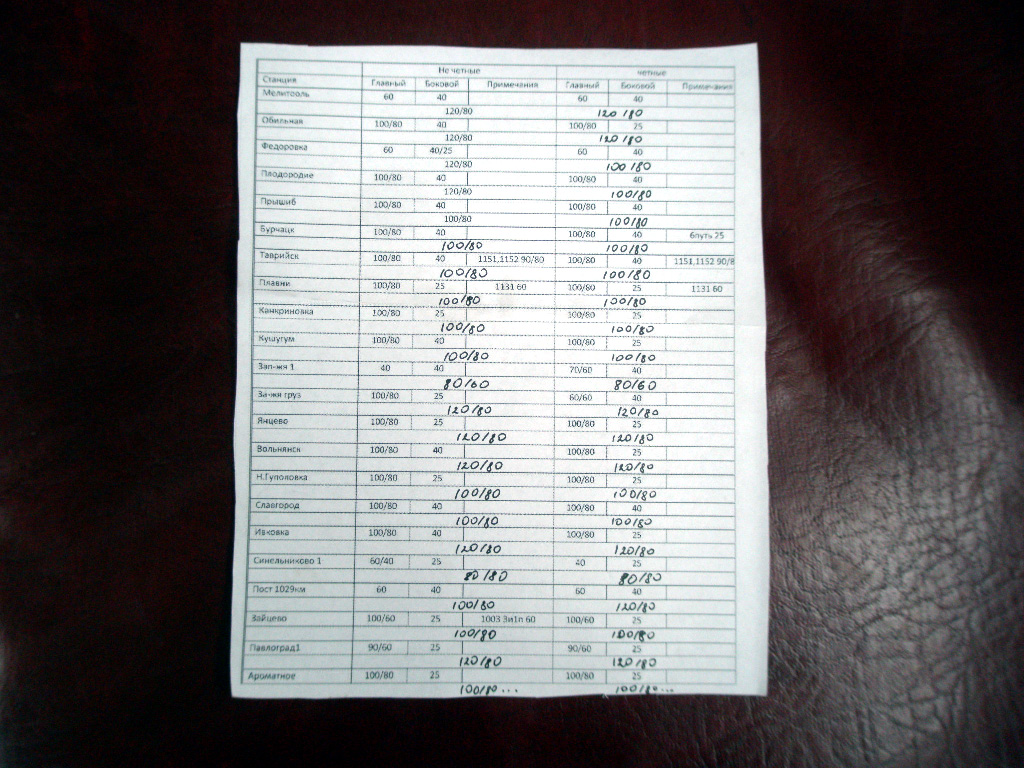 Не четные четные
Станция Главный Боковой Примечания Главный Боковой Примечания
Мелитополь 60 40 60 40
120/80 120/80
Обильная 100/80 40 100/80 25
120/80 120/80
Федоровка 60 40/25 60 40
120/80 100/80
Плодородие 100/80 40 100/80 40
120/80 100/80
Прышиб 100/80 40 100/80 40
100/80 100/80
Бурчацк 100/80 40 100/80 40 6путь 25
100/80 100/80
Таврийск 100/80 40 1151,1152 90/80 100/80 40 1151,1152 90/8
100/80 100/80
Плавни 100/80 25 1131 60 100/80 25 1131 60
100/80 100/80
Канкриновка 100/80 25 100/80 25
100/80 100/80
Кушугум 100/80 40 100/80 25
100/80 100/80
Зап-жя 1 40 40 70/60 40
80/60 80/60
За-жи груз 100/80 25 60/60 40
120/80 120/80
Янцево 100/80 25 100/80 25
120/80 120/80
Вольнянск 100/80 40 100/80 25
120/80 120/80
Н.Гуполовка 100/80 25 100/80 25
100/80 100/80
Славгород 100/80 40 100/80 40
100/80 100/80
Ивковка 100/80 40 100/80 25
120/80 120/80
Синельниково 1 60/40 25 40 25
80/80 80/80
Пост 1029км 60 40 60 40
100/80 120/80
Зайцево 100/60 25 1003 3и1п 60 100/60 25
100/80 100/80
Павлоград1 90/60 25 90/60 25
120/80 120/80
Ароматное 100/80 25 100/80 25
100/80... 100/80...